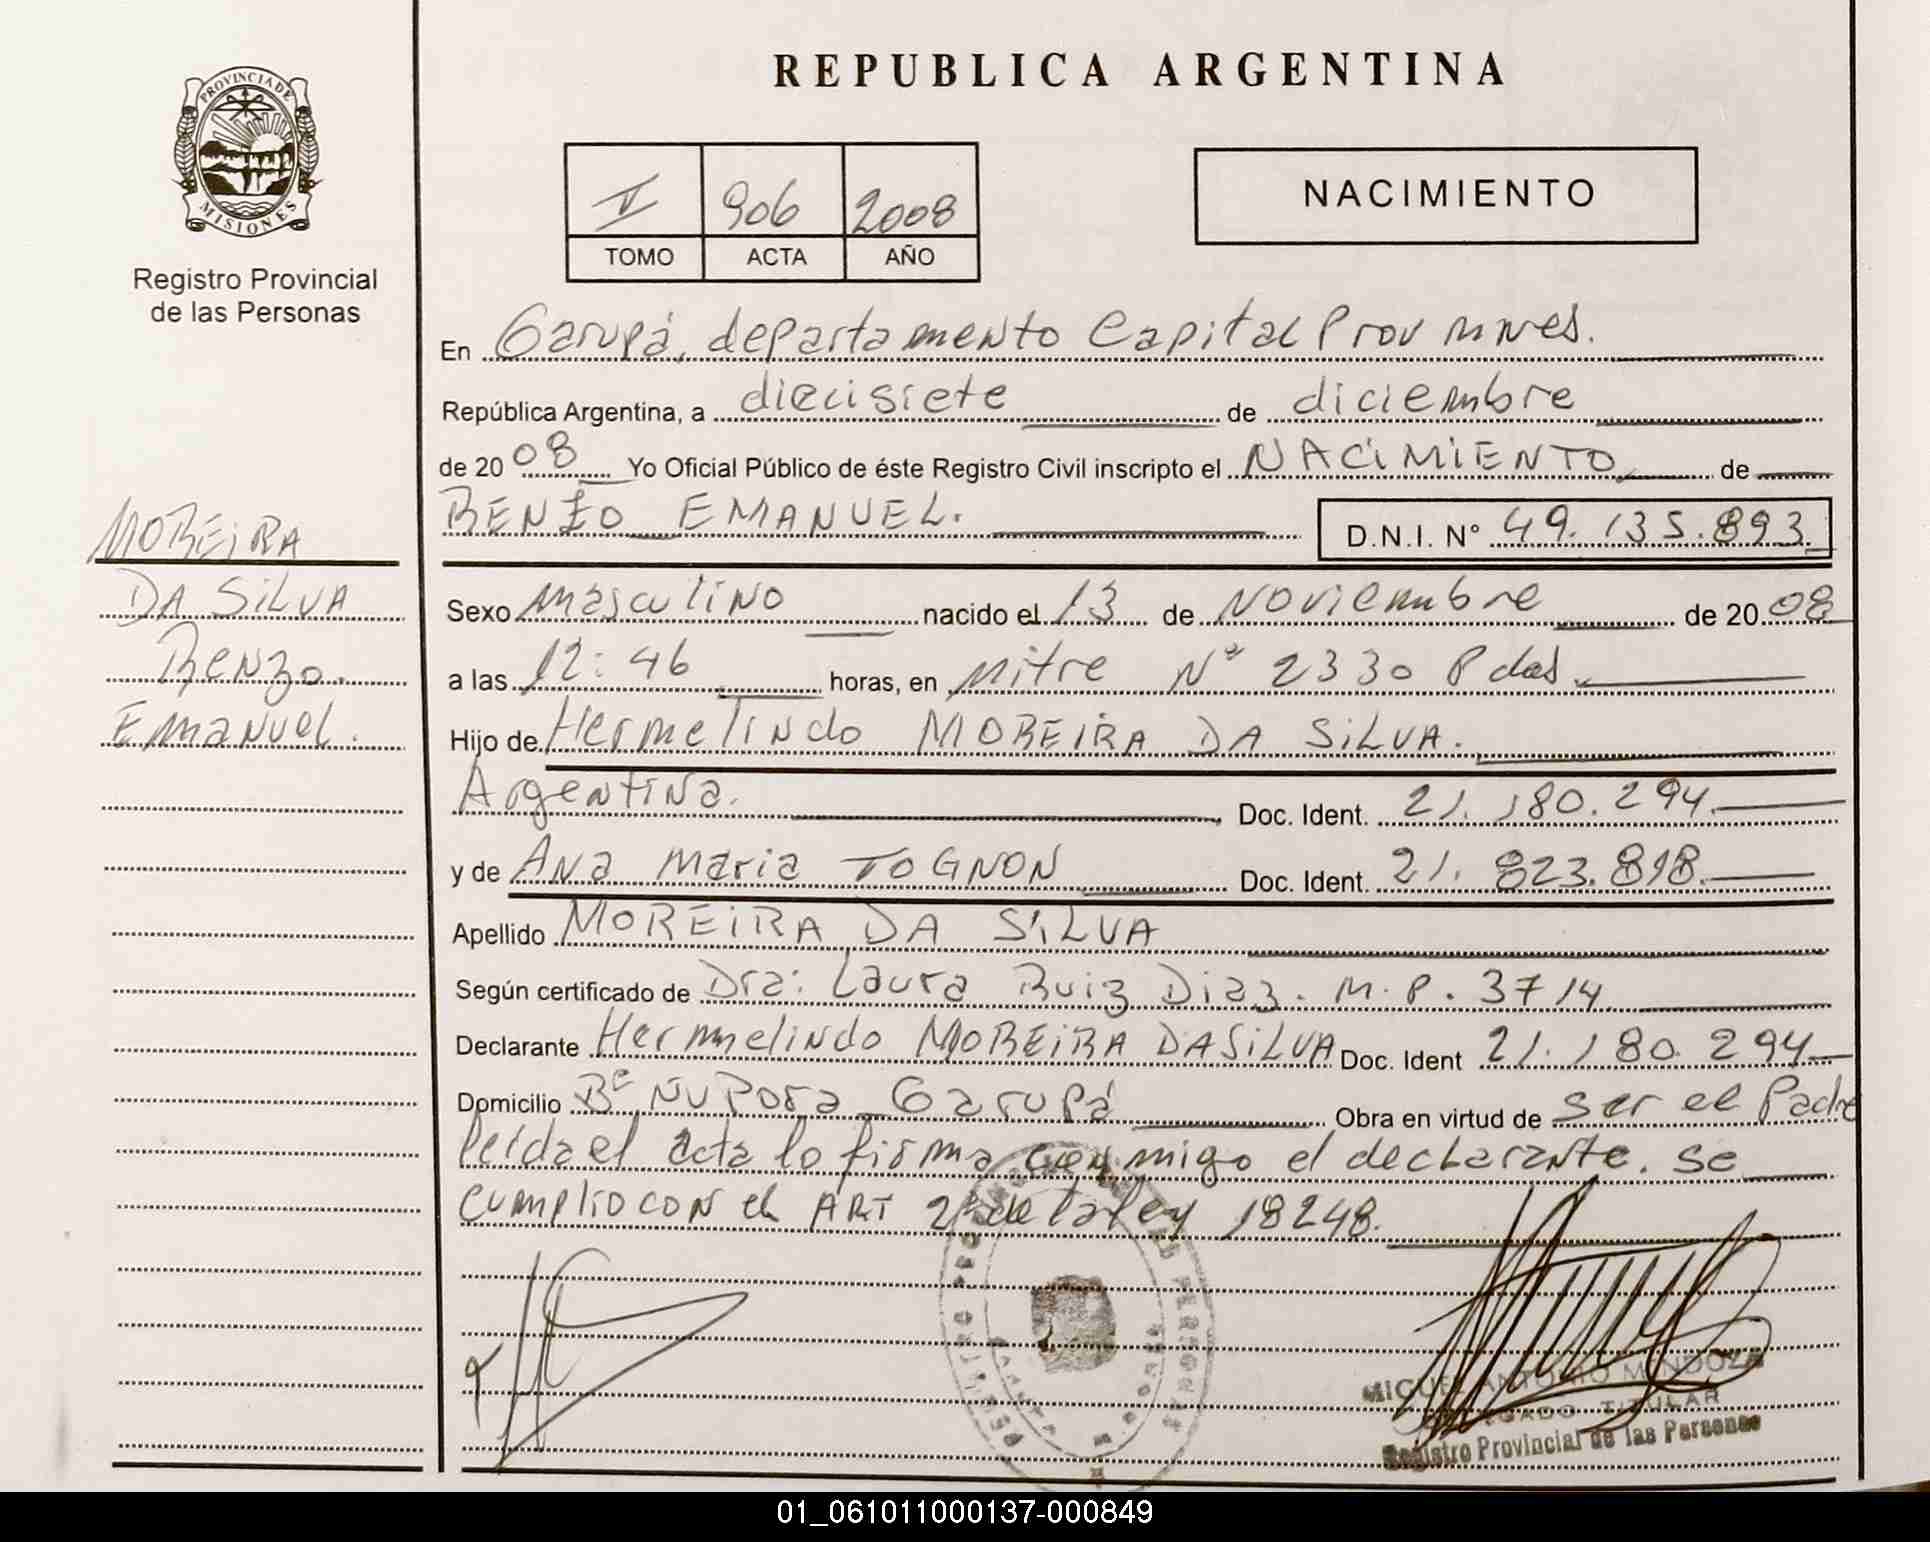 PROVINCIA DE
MISIONES
Registro Provincial
de las Personas
MOREIRA
DA SILVA
Renzo.
Emanuel.
REPUBLICA ARGENTINA
II 906 2008
TOMO ACTA AÑO
NACIMIENTO
En Garupá, departamento Capital Prov mnes.
República Argentina, a diecisiete de diciembre
de 20 08 Yo Oficial Público de éste Registro Civil inscripto el NACIMIENTO de
RENZO EMANUEL. D.N.I. N° 49.135.893
Sexo masculino nacido el 13 de noviembre de 20 08
a las 12:46 horas, en mitre N° 2330 Pdas.
Hijo de Hermelindo MOREIRA DA SILVA.
Argentina. Doc. Ident. 21.180.294.
y de Ana Maria TOGNON Doc. Ident. 21.823.818.
Apellido MOREIRA DA SILVA
Según certificado de Dra: Laura Ruiz Diaz. M.P. 3714
Declarante Hermelindo MOREIRA DA SILVA Doc. Ident 21.180.294
Domicilio B° Ñu Pora Garupá Obra en virtud de ser el Padre
leida el acta lo firma conmigo el declarante. se
cumplio con el ART 2° de la ley 18248.
MIGUEL ANTONIO MENDOZA
DELEGADO TITULAR
Registro Provincial de las Personas
01_061011000137-000849